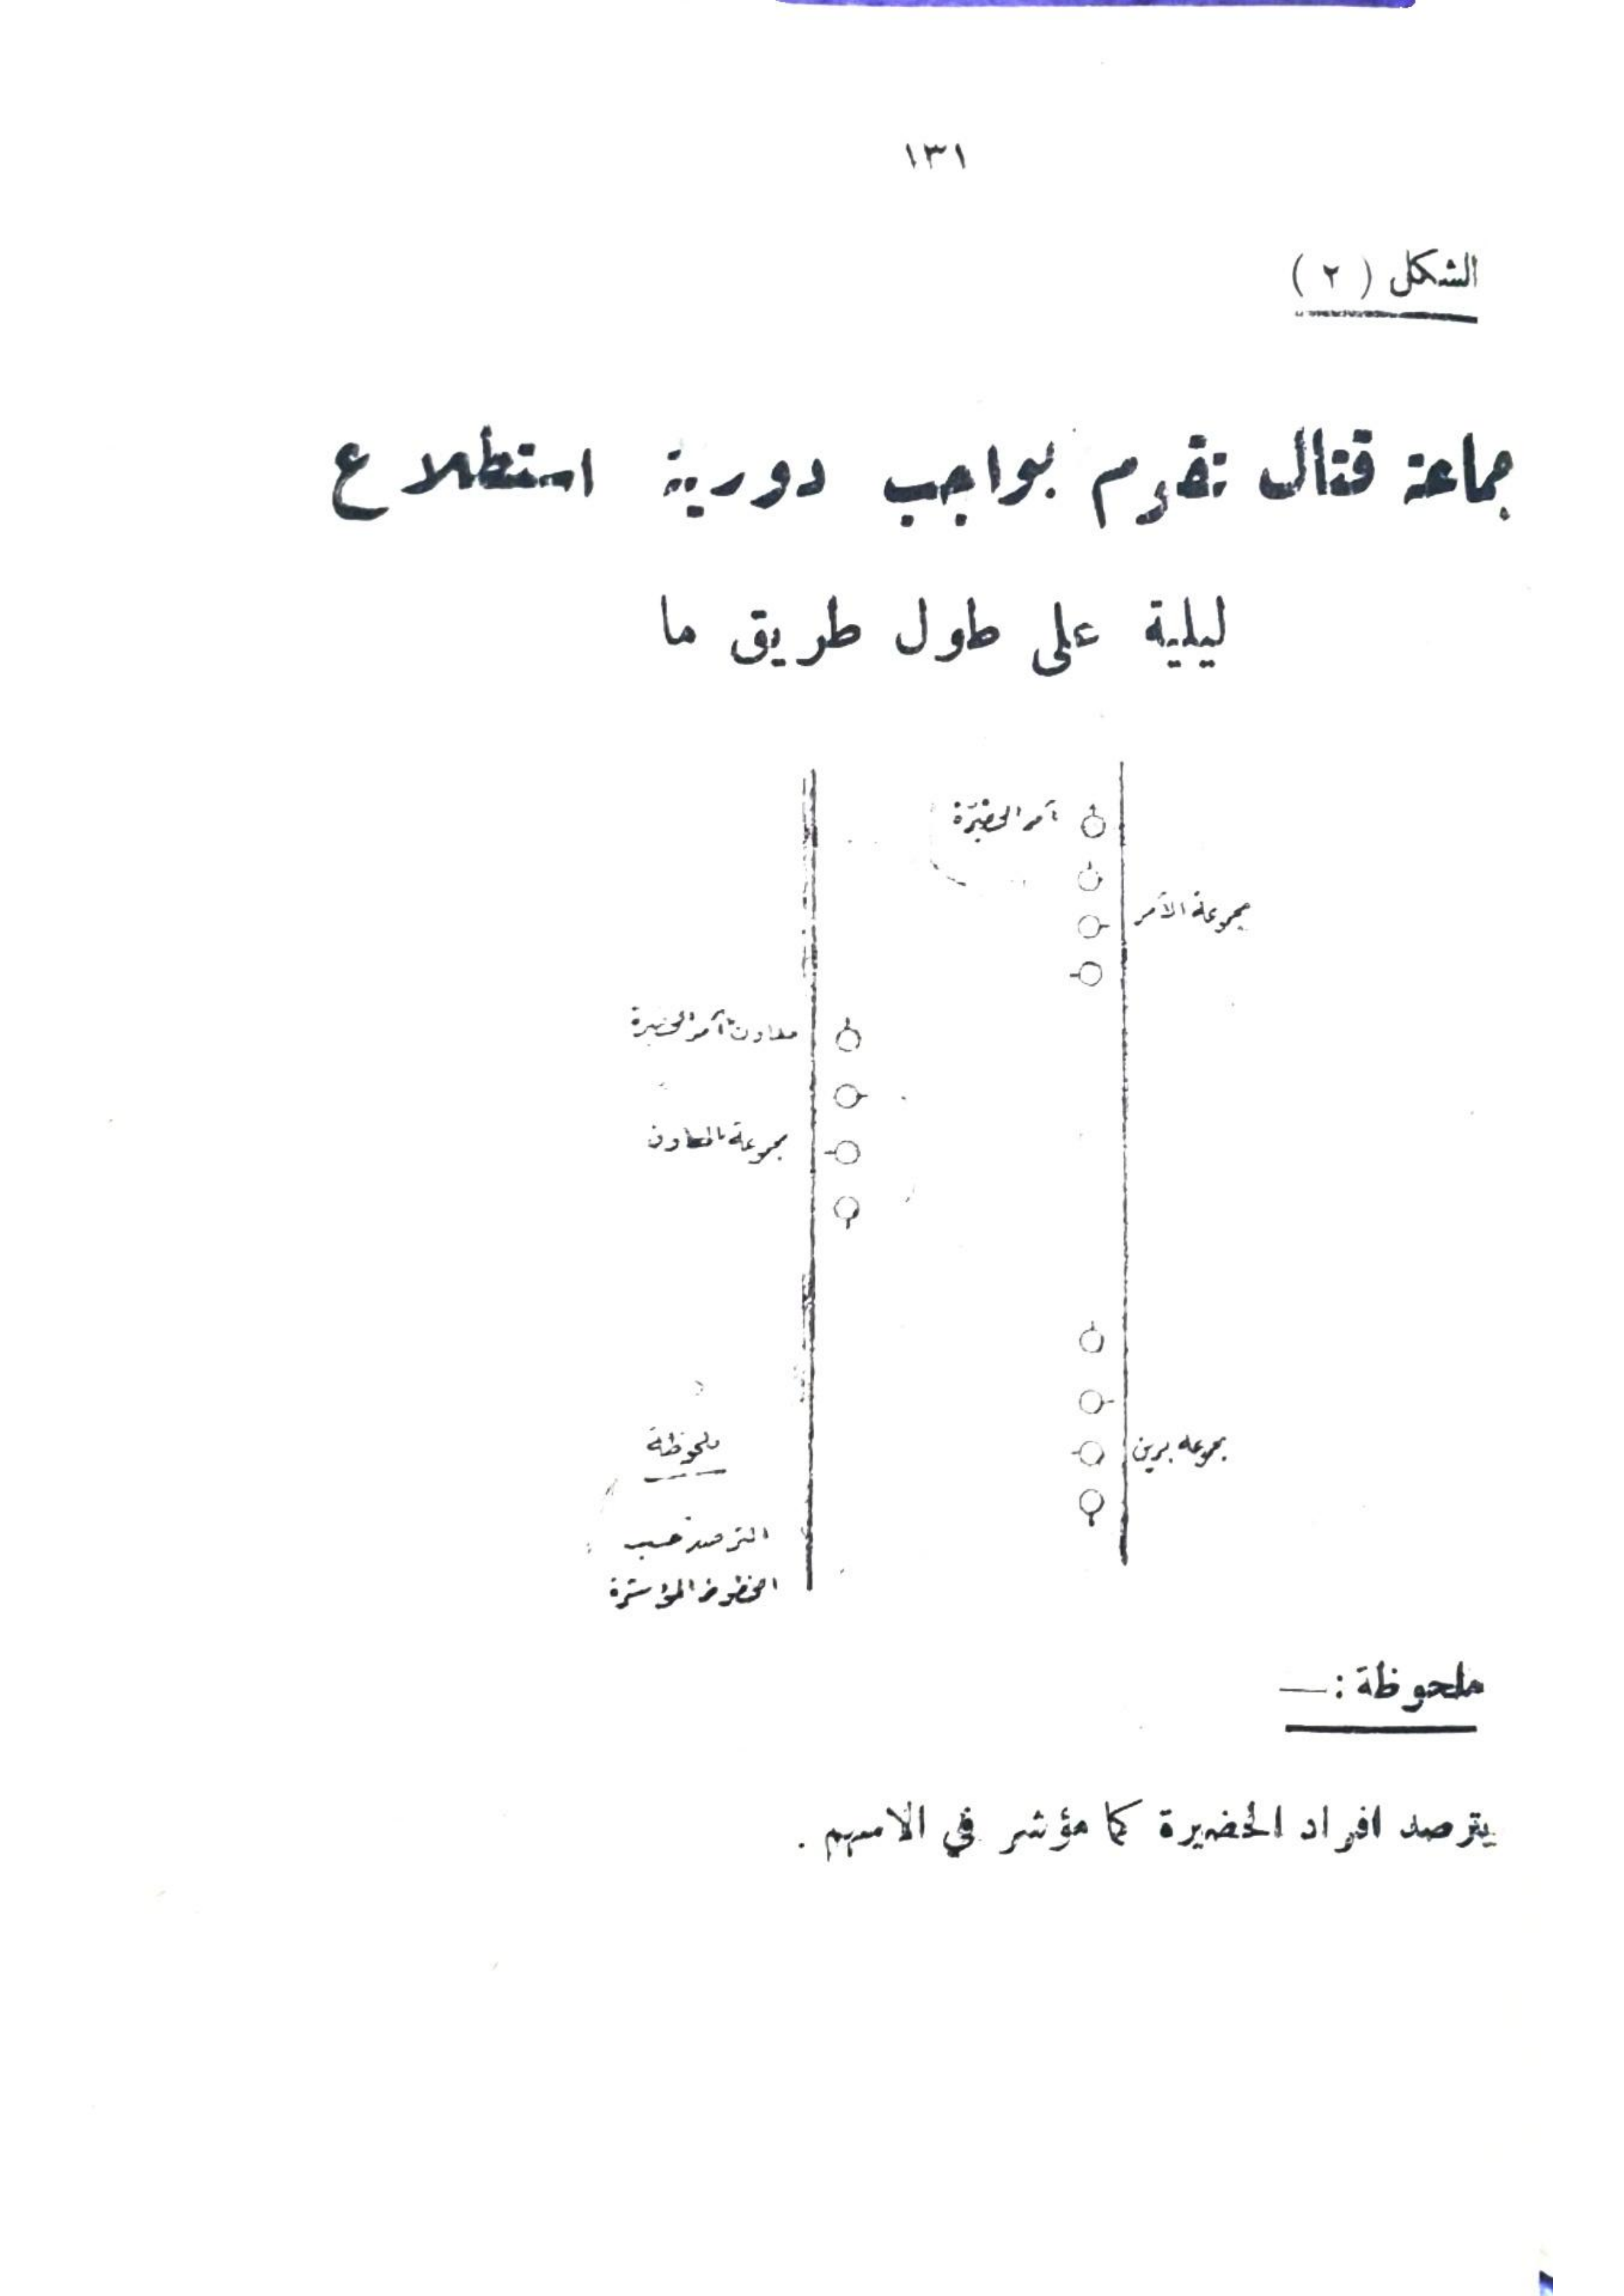 ١٣١
الشكل ( ٢ )
جماعة قتال تقوم بواجب دورية استطلاع
ليلية على طول طريق ما
آمر الحضيرة
مجموعة الآمر
معاون آمر الحضيرة
مجموعة المعاون
مجموعة برين
ملحوظة
الترصد حسب
الخطوط المؤشرة
ملحوظة :—
يترصد افراد الحضيرة كما مؤشر في الاسهم .